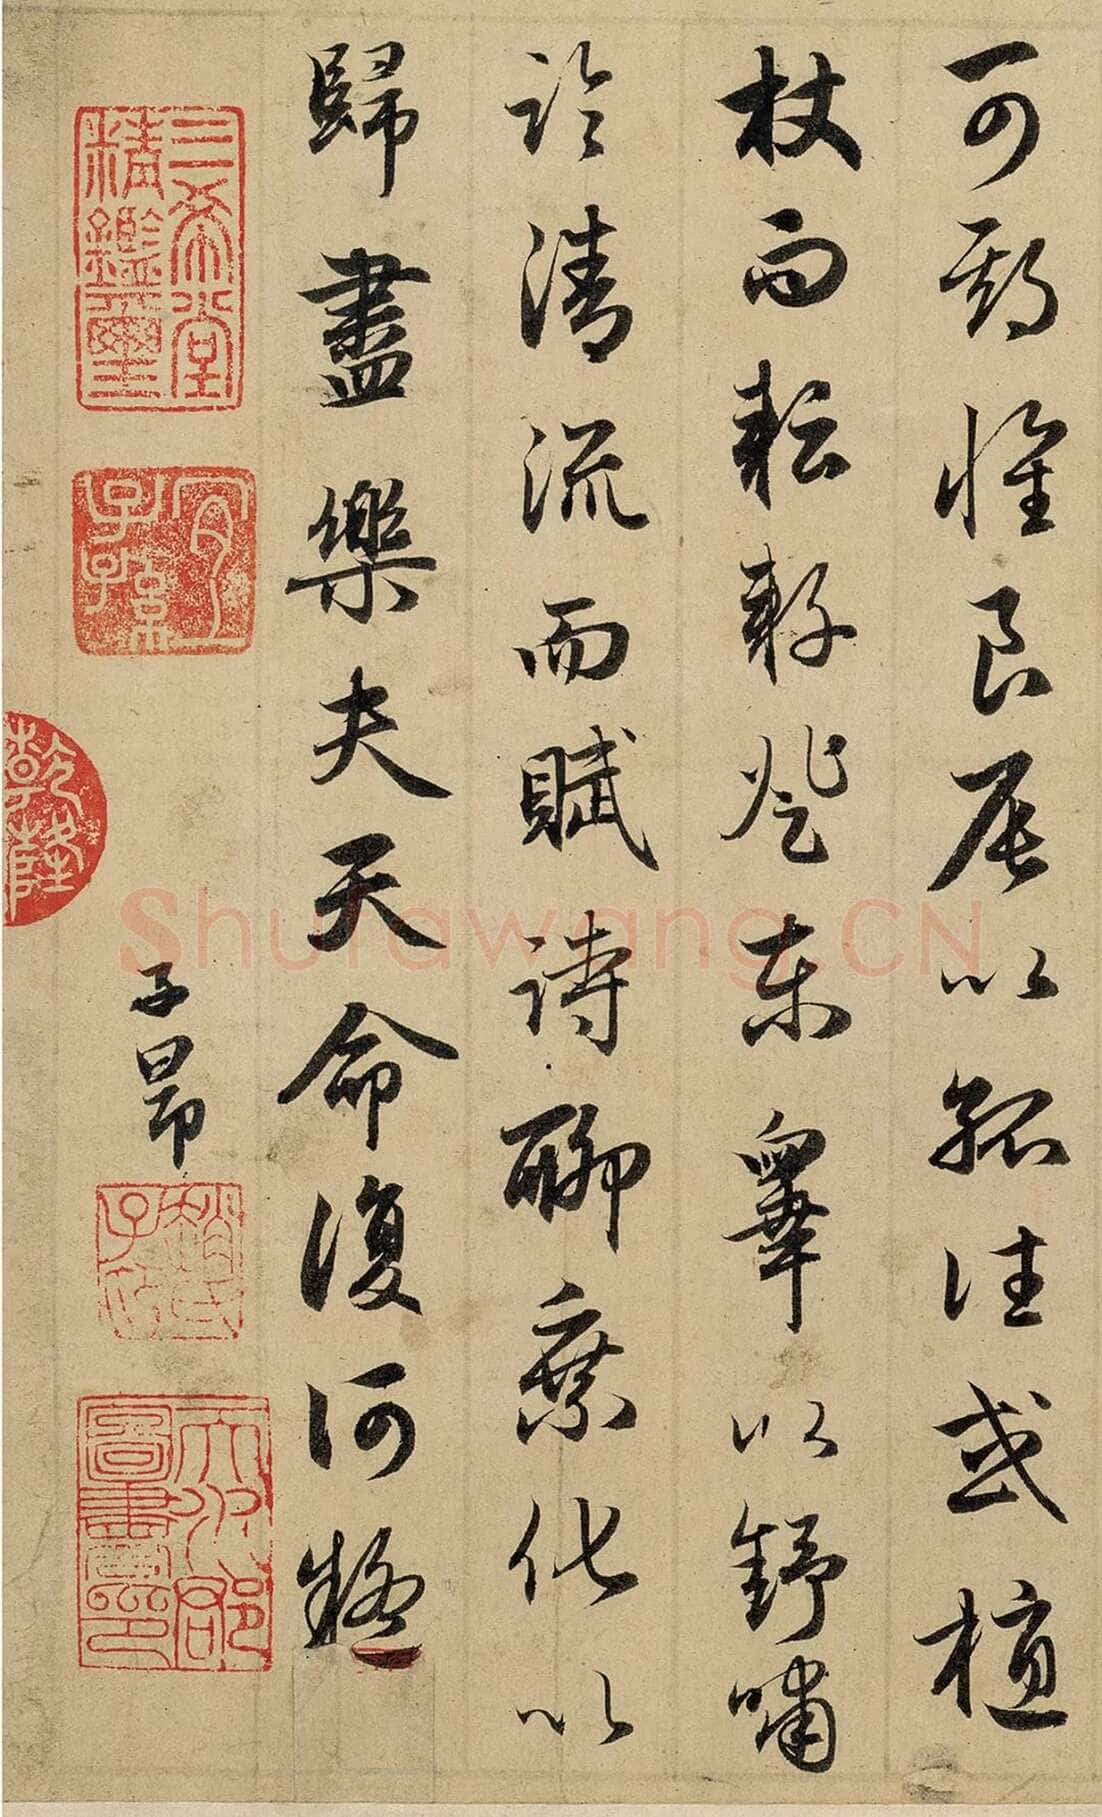 可期懷良辰以孤往或植
杖而耘耔登東皋以舒嘯
臨清流而賦詩聊乘化以
歸盡樂夫天命復何疑
子昂
三希堂精鑑璽
宜子孫
趙氏子昂
天水郡圖書印
Shufawang.CN